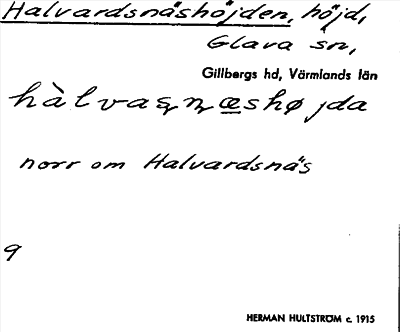 Halvardsnäshöjden, höjd,
Glava sn,
Gillbergs hd, Värmlands län
norr om Halvardsnäs
9
HERMAN HULTSTRÖM c. 1915